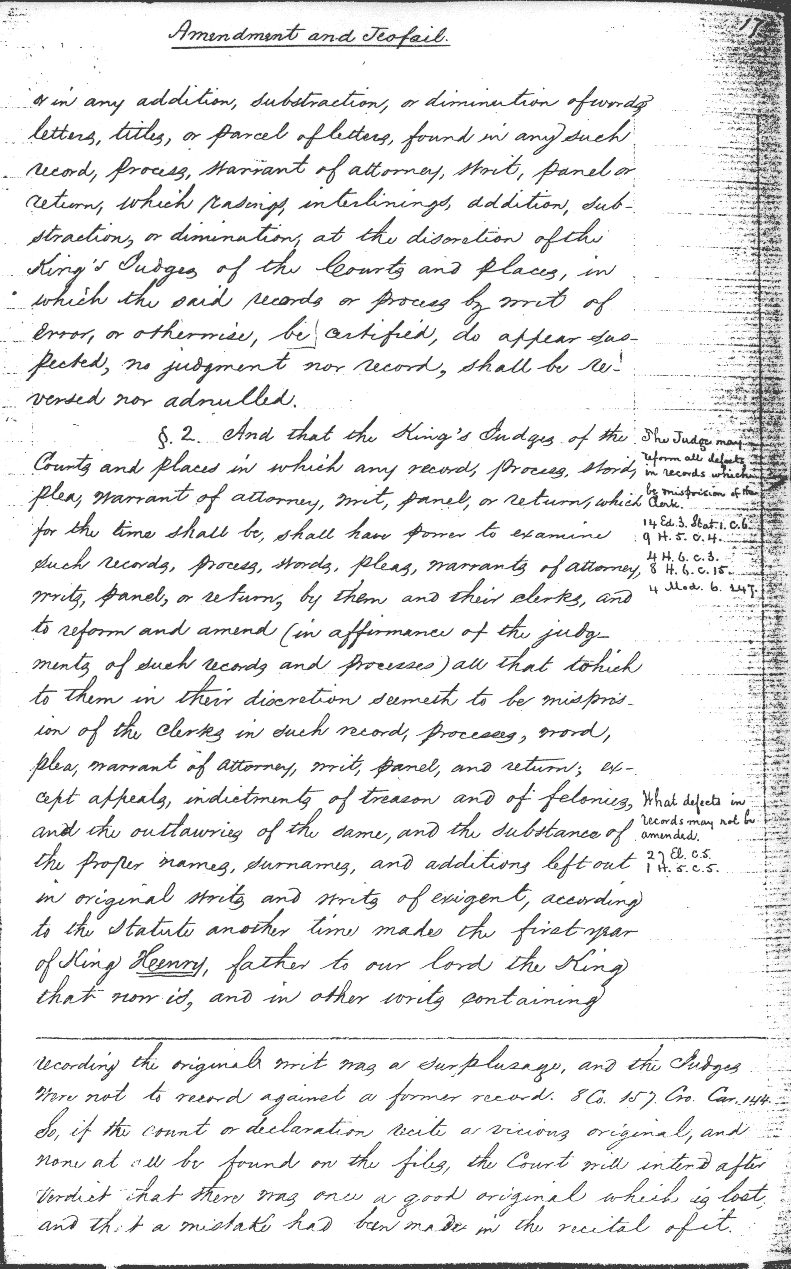 Amendment and Jeofail.
17
or in any addition, substraction, or diminution of words,
letters, titles, or parcel of letters, found in any such
record, process, warrant of attorney, writ, panel or
return, which rasings, interlinings, addition, sub-
straction, or diminution, at the discretion of the
King's Judges of the Courts and places, in
which the said records or process by writ of
Error, or otherwise, be certified, do appear sus-
pected, no judgment nor record, shall be re-
versed nor adnulled.
§. 2. And that the King's Judges of the
Courts and places in which any record, process, word,
plea, warrant of attorney, writ, panel, or return, which
for the time shall be, shall have power to examine
such records, process, words, pleas, warrants of attorney,
writs, panel, or return, by them and their clerks, and
to reform and amend (in affirmance of the judg-
ments of such records and processes) all that which
to them in their discretion seemeth to be mispris-
ion of the clerks in such record, processes, word,
plea, warrant of attorney, writ, panel, and return; ex-
cept appeals, indictments of treason and of felonies,
and the outlawries of the same, and the substance of
the proper names, surnames, and additions left out
in original writs and writs of exigent, according
to the Statute another time made the first year
of King Henry, father to our lord the King
that now is, and in other writs containing
The Judge may
reform all defects
in records which
be misprision of the
Clerk.
14 Ed. 3. Stat. 1. c. 6.
9 H. 5. c. 4.
4 H. 6. c. 3.
8 H. 6. c. 15.
4 Mod. 6. 247.
What defects in
records may not be
amended.
27 El. c. 5.
1 H. 5. c. 5.
recording the original writ was a surplusage, and the Judges
were not to record against a former record. 8 Co. 157. Cro. Car. 144.
So, if the count or declaration recite a vicious original, and
none at all be found on the files, the Court will intend after
Verdict that there was once a good original which is lost,
and that a mistake had been made in the recital of it.